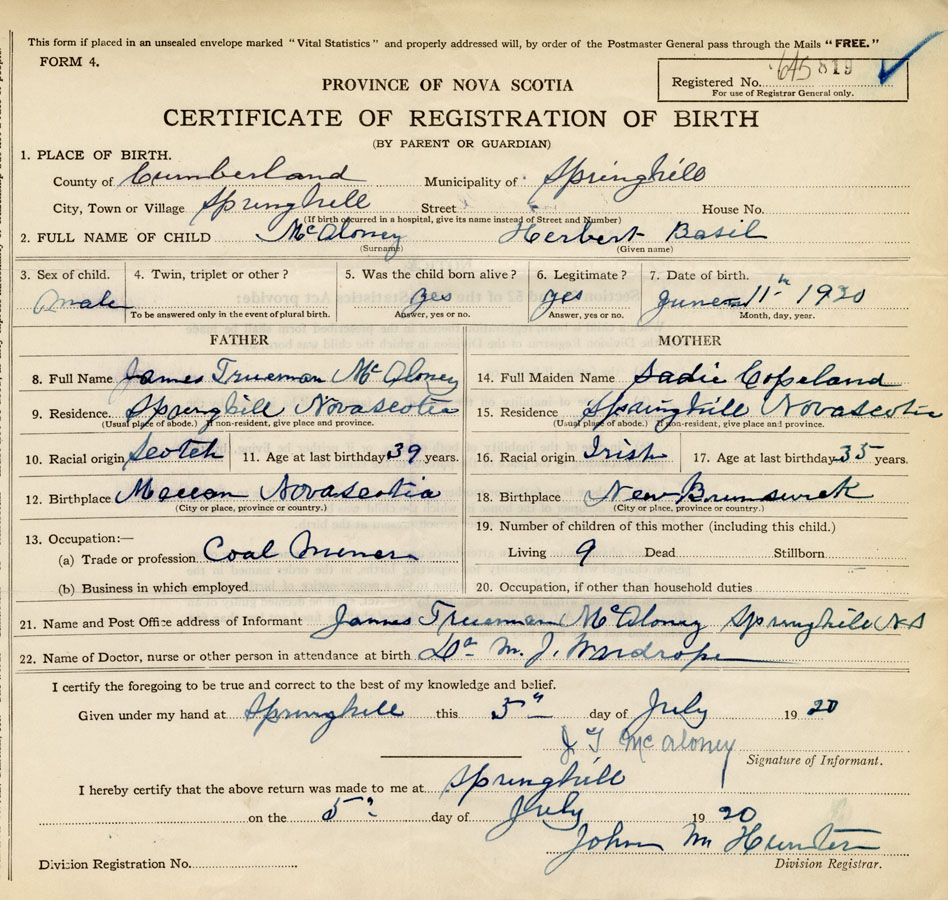 This form if placed in an unsealed envelope marked "Vital Statistics" and properly addressed will, by order of the Postmaster General pass through the Mails "FREE."
FORM 4.
Registered No. 645 819
For use of Registrar General only.
PROVINCE OF NOVA SCOTIA
CERTIFICATE OF REGISTRATION OF BIRTH
(BY PARENT OR GUARDIAN)
1. PLACE OF BIRTH.
County of Cumberland Municipality of Springhill
City, Town or Village Springhill Street House No.
(If birth occurred in a hospital, give its name instead of Street and Number)
2. FULL NAME OF CHILD McAloney Herbert Basil
(Surname) (Given name)
3. Sex of child. 4. Twin, triplet or other? 5. Was the child born alive? 6. Legitimate? 7. Date of birth.
male yes yes June 11th 1920
To be answered only in the event of plural birth. Answer, yes or no. Answer, yes or no. Month, day, year.
FATHER MOTHER
8. Full Name James Trueman McAloney 14. Full Maiden Name Sadie Copeland
9. Residence Springhill Novascotia 15. Residence Springhill Novascotia
(Usual place of abode.) If non-resident, give place and province. (Usual place of abode.) If non-resident, give place and province.
10. Racial origin Scotch 11. Age at last birthday 39 years. 16. Racial origin Irish 17. Age at last birthday 35 years.
12. Birthplace Maccan Novascotia 18. Birthplace New Brunswick
(City or place, province or country.) (City or place, province or country.)
13. Occupation:— 19. Number of children of this mother (including this child.)
(a) Trade or profession Coal Miner Living 9 Dead Stillborn
(b) Business in which employed 20. Occupation, if other than household duties
21. Name and Post Office address of Informant James Trueman McAloney Springhill N.S
22. Name of Doctor, nurse or other person in attendance at birth Dr M. J. Wardrope
I certify the foregoing to be true and correct to the best of my knowledge and belief.
Given under my hand at Springhill this 5th day of July 1920
J T McAloney
Signature of Informant.
I hereby certify that the above return was made to me at Springhill
on the 5th day of July 1920
John M Hunter
Division Registration No. Division Registrar.